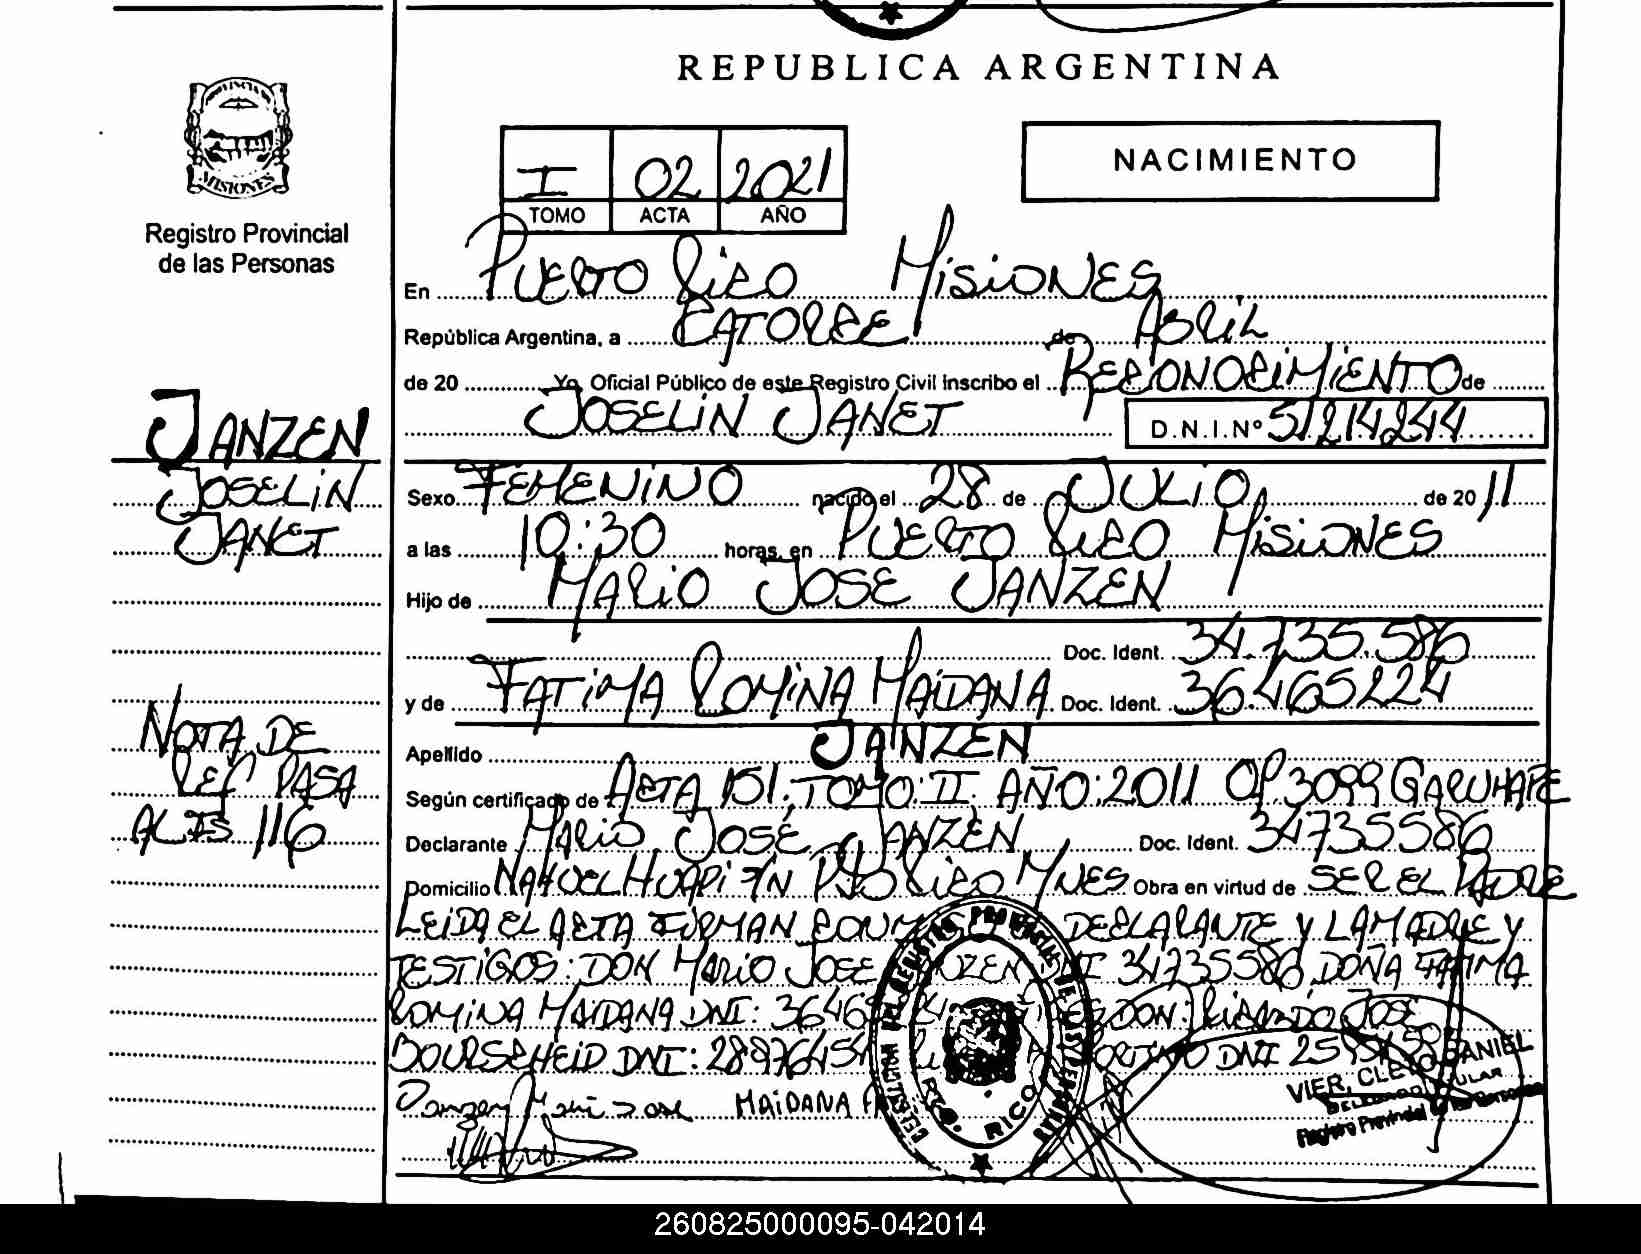 REPUBLICA ARGENTINA
MISIONES
Registro Provincial
de las Personas
I 02 2021
TOMO ACTA AÑO
NACIMIENTO
En PUERTO RICO MISIONES
República Argentina, a CATORCE de ABRIL
de 20 Yo, Oficial Público de este Registro Civil Inscribo el RECONOCIMIENTO de
JOSELIN JANET D.N.I.Nº 51214244
JANZEN
JOSELIN
JANET
Sexo FEMENINO nacido el 28 de JULIO de 2011
a las 10:30 horas, en PUERTO RICO MISIONES
Hijo de MARIO JOSE JANZEN
Doc. Ident. 34.735.586
y de FATIMA ROMINA MAIDANA Doc. Ident. 36.465224
NOTA DE
REF PASA
AL FS 116
Apellido JANZEN
Según certificado de ACTA 151; TOMO: II; AÑO: 2011 OP 3099 GARUHAPE
Declarante MARIO JOSÉ JANZEN Doc. Ident. 34735586
Domicilio NAHUEL HUAPI S/N PTO RICO MNES Obra en virtud de SER EL PADRE
LEIDA EL ACTA FIRMAN CONMIGO DECLARANTE Y LA MADRE Y
TESTIGOS: DON MARIO JOSE JANZEN 34735586 DOÑA FATIMA
ROMINA MAIDANA DNI: 36465 DON: RICARDO JOSE
BOURSCHEID DNI: 28976454 DNI
Janzen Mario Jose MAIDANA
VIER, CLETO DANIEL
DELEGADO TITULAR
Registro Provincial de las Personas
DELEGACION DEL REGISTRO PROVINCIAL DE LAS PERSONAS
PTO. RICO
260825000095-042014